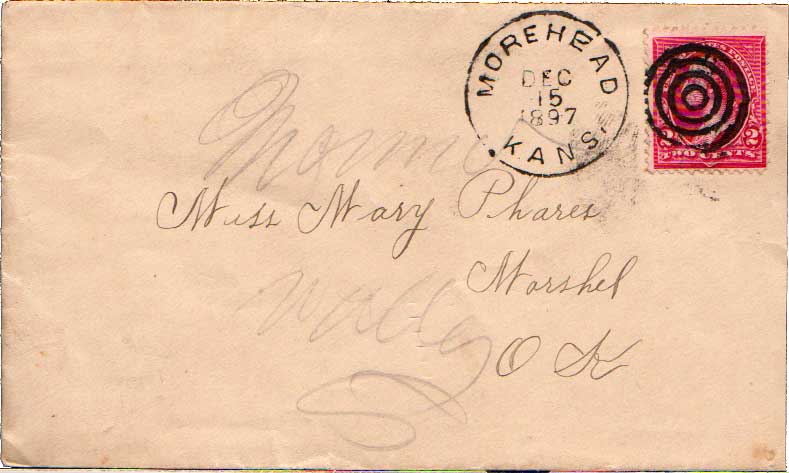 MOREHEAD
DEC
15
1897
KANS.
2 2
TWO CENTS
Miss Mary Phares
Marshel
O K